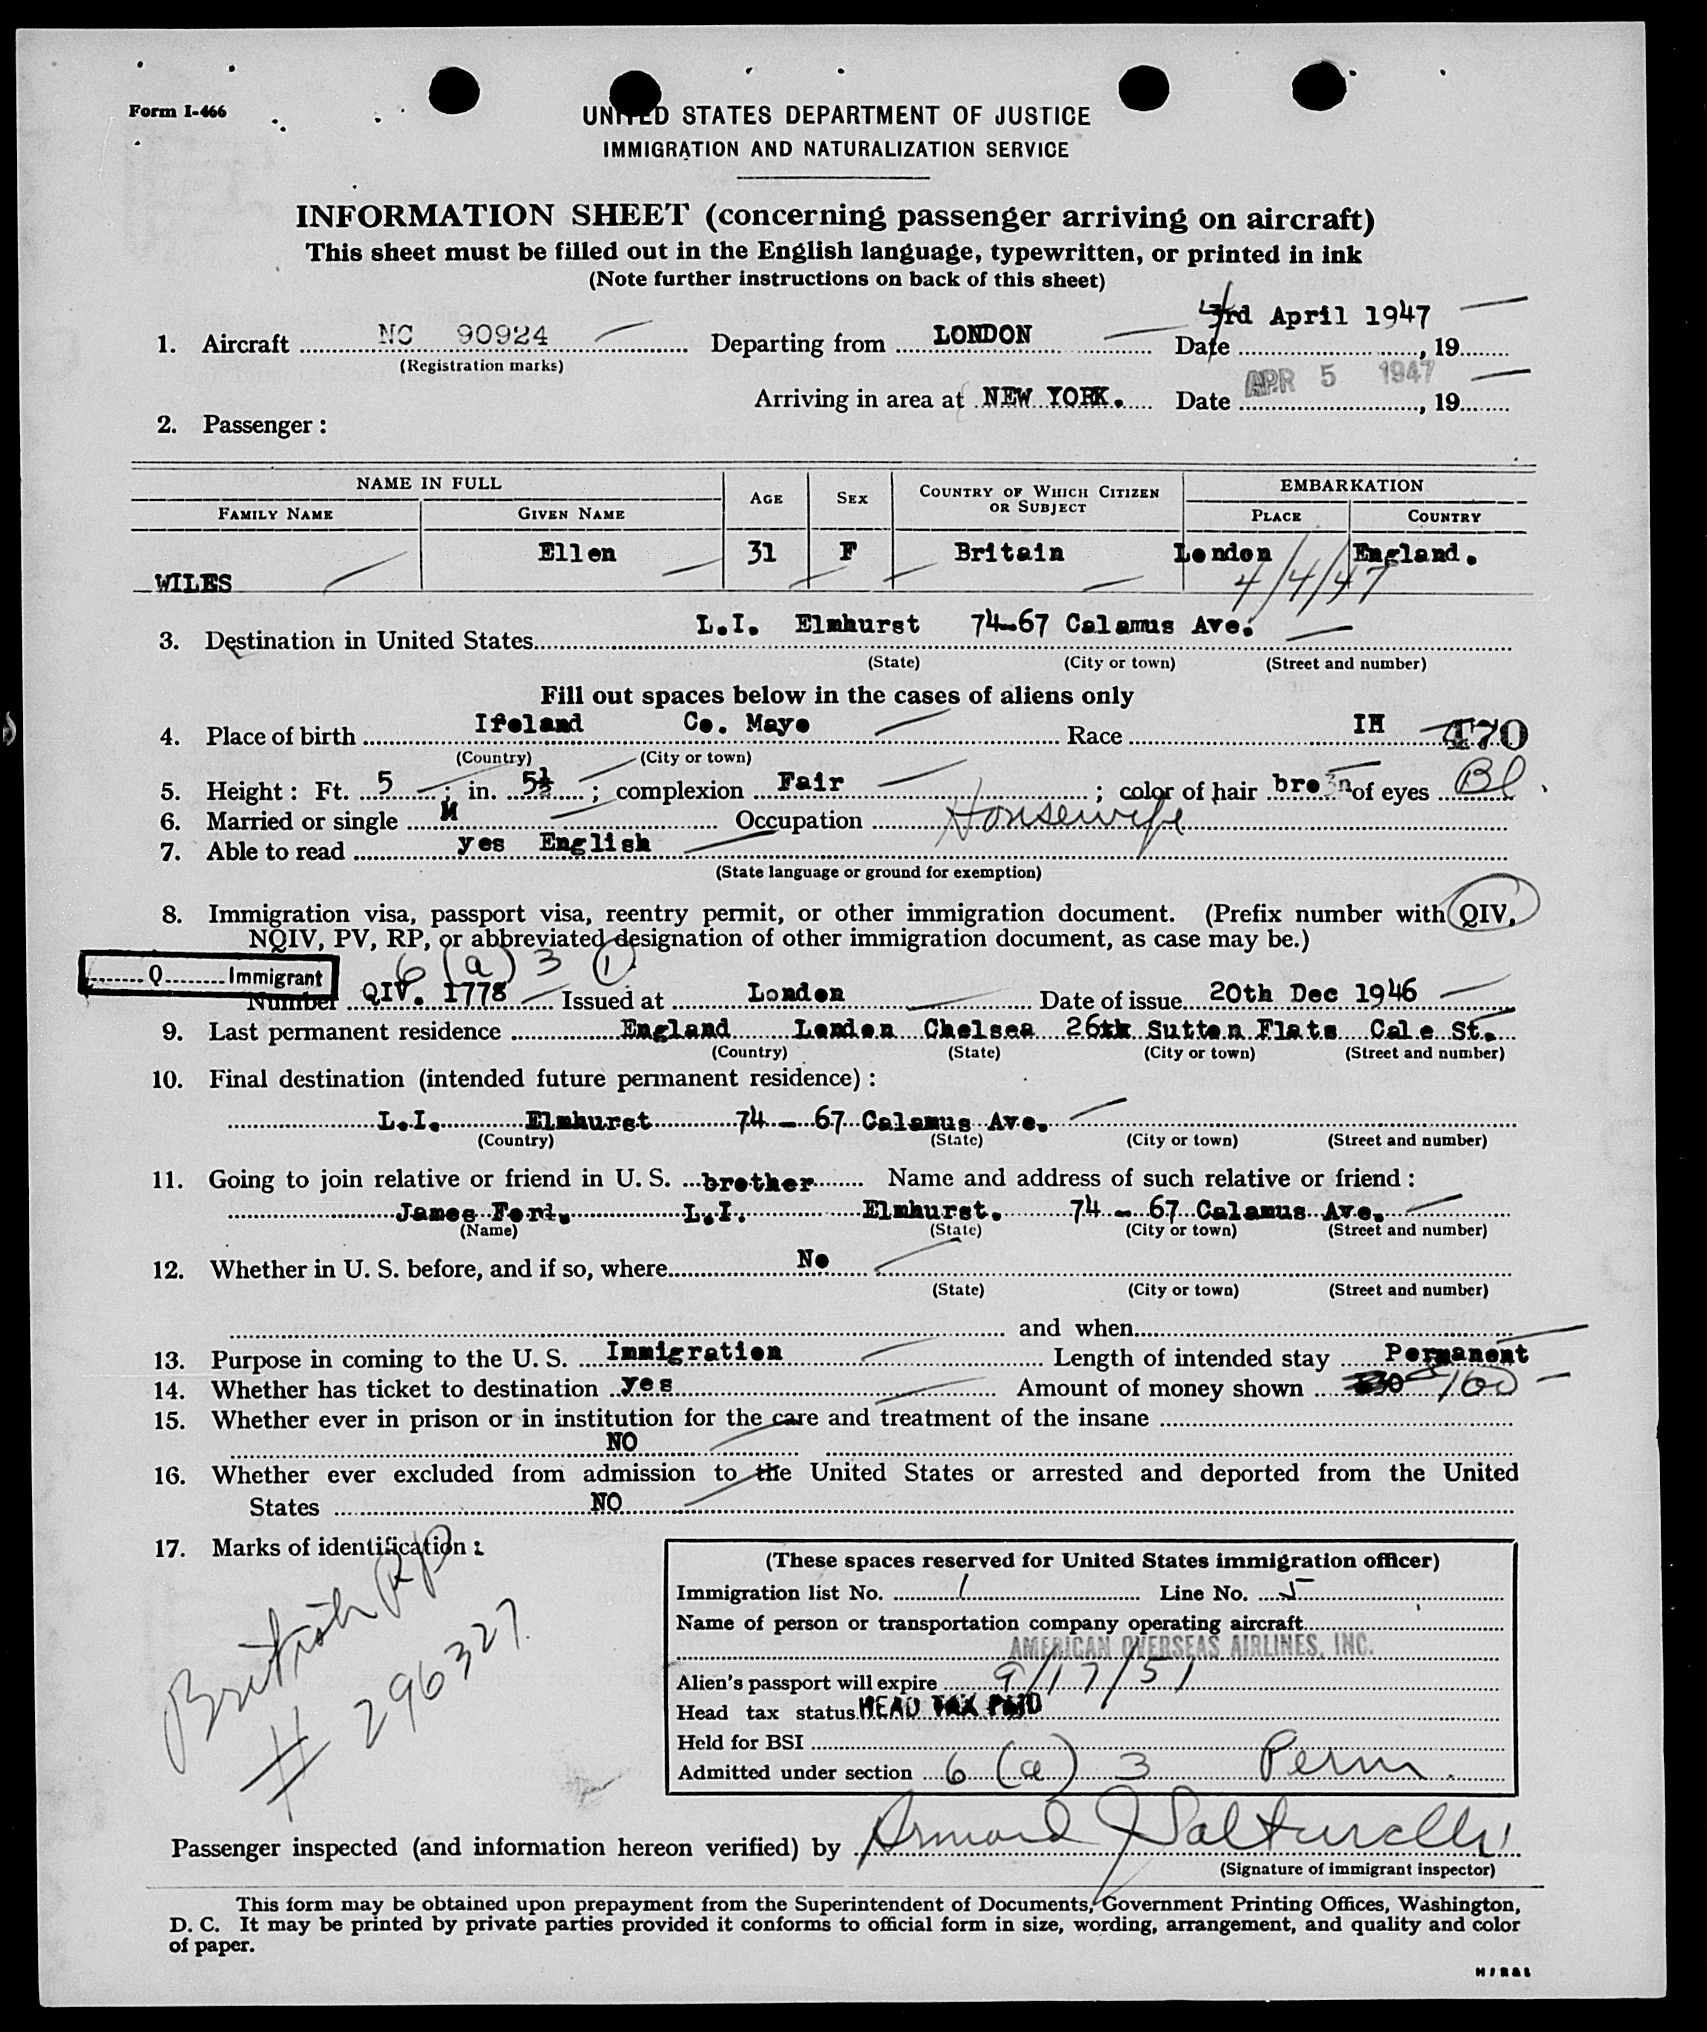 Form I-466
UNITED STATES DEPARTMENT OF JUSTICE
IMMIGRATION AND NATURALIZATION SERVICE
INFORMATION SHEET (concerning passenger arriving on aircraft)
This sheet must be filled out in the English language, typewritten, or printed in ink
(Note further instructions on back of this sheet)
1. Aircraft NC 90924 Departing from LONDON Date 4 3rd April 1947, 19
(Registration marks)
Arriving in area at NEW YORK. Date APR 5 1947, 19
2. Passenger:
NAME IN FULL AGE SEX COUNTRY OF WHICH CITIZEN OR SUBJECT EMBARKATION
FAMILY NAME GIVEN NAME PLACE COUNTRY
WILES Ellen 31 F Britain London England.
4/4/47
3. Destination in United States L.I. Elmhurst 74-67 Calamus Ave.
(State) (City or town) (Street and number)
Fill out spaces below in the cases of aliens only
4. Place of birth Ireland Co. Mayo Race IH 470
(Country) (City or town)
5. Height: Ft. 5; in. 5½; complexion Fair; color of hair bro n of eyes Bl.
6. Married or single M Occupation Housewife
7. Able to read yes English
(State language or ground for exemption)
8. Immigration visa, passport visa, reentry permit, or other immigration document. (Prefix number with QIV,
NQIV, PV, RP, or abbreviated designation of other immigration document, as case may be.)
Q Immigrant 6 (a) 3 1
Number QIV. 1778 Issued at London Date of issue 20th Dec 1946
9. Last permanent residence England London Chelsea 26th Sutton Flats Cale St.
(Country) (State) (City or town) (Street and number)
10. Final destination (intended future permanent residence):
L.I. Elmhurst 74 - 67 Calamus Ave.
(Country) (State) (City or town) (Street and number)
11. Going to join relative or friend in U. S. brother Name and address of such relative or friend:
James Ford. L.I. Elmhurst. 74 - 67 Calamus Ave.
(Name) (State) (City or town) (Street and number)
12. Whether in U. S. before, and if so, where No
(State) (City or town) (Street and number)
and when
13. Purpose in coming to the U. S. Immigration Length of intended stay Permanent
14. Whether has ticket to destination yes Amount of money shown 160
15. Whether ever in prison or in institution for the care and treatment of the insane
NO
16. Whether ever excluded from admission to the United States or arrested and deported from the United
States NO
17. Marks of identification:
British PP
# 296327
(These spaces reserved for United States immigration officer)
Immigration list No. 1 Line No. 5
Name of person or transportation company operating aircraft
AMERICAN OVERSEAS AIRLINES, INC.
Alien's passport will expire 9/17/51
Head tax status HEAD TAX PAID
Held for BSI
Admitted under section 6 (a) 3 Perm.
Passenger inspected (and information hereon verified) by Armand J
(Signature of immigrant inspector)
This form may be obtained upon prepayment from the Superintendent of Documents, Government Printing Offices, Washington,
D. C. It may be printed by private parties provided it conforms to official form in size, wording, arrangement, and quality and color
of paper.